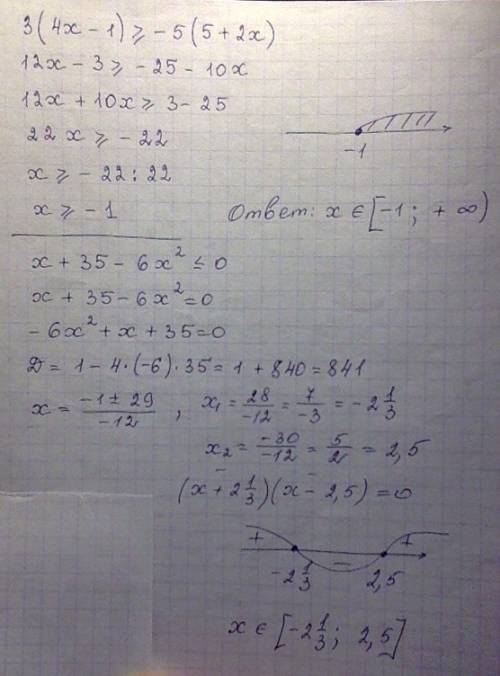 3(4x - 1) ⩾ - 5(5 + 2x)
12x - 3 ⩾ - 25 - 10x
12x + 10x ⩾ 3 - 25
22x ⩾ - 22
x ⩾ - 22 : 22
x ⩾ - 1
-1
Ответ: x ∈ [-1; + ∞)
x + 35 - 6x² ≤ 0
x + 35 - 6x² = 0
- 6x² + x + 35 = 0
D = 1 - 4·(-6)·35 = 1 + 840 = 841
x = (-1 ± 29)/(-12), x₁ = 28/(-12) = 7/(-3) = -2 1/3
x₂ = (-30)/(-12) = 5/2 = 2,5
(x + 2 1/3)(x - 2,5) = 0
+ - +
-2 1/3 2,5
x ∈ [-2 1/3; 2,5]